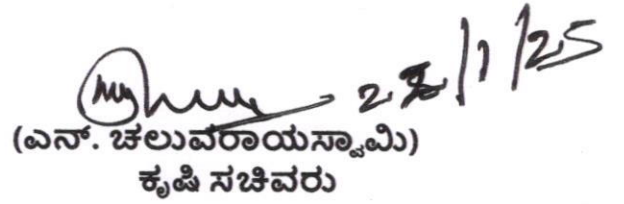 28/1/25
(ಎನ್. ಚಲುವರಾಯಸ್ವಾಮಿ)
ಕೃಷಿ ಸಚಿವರು